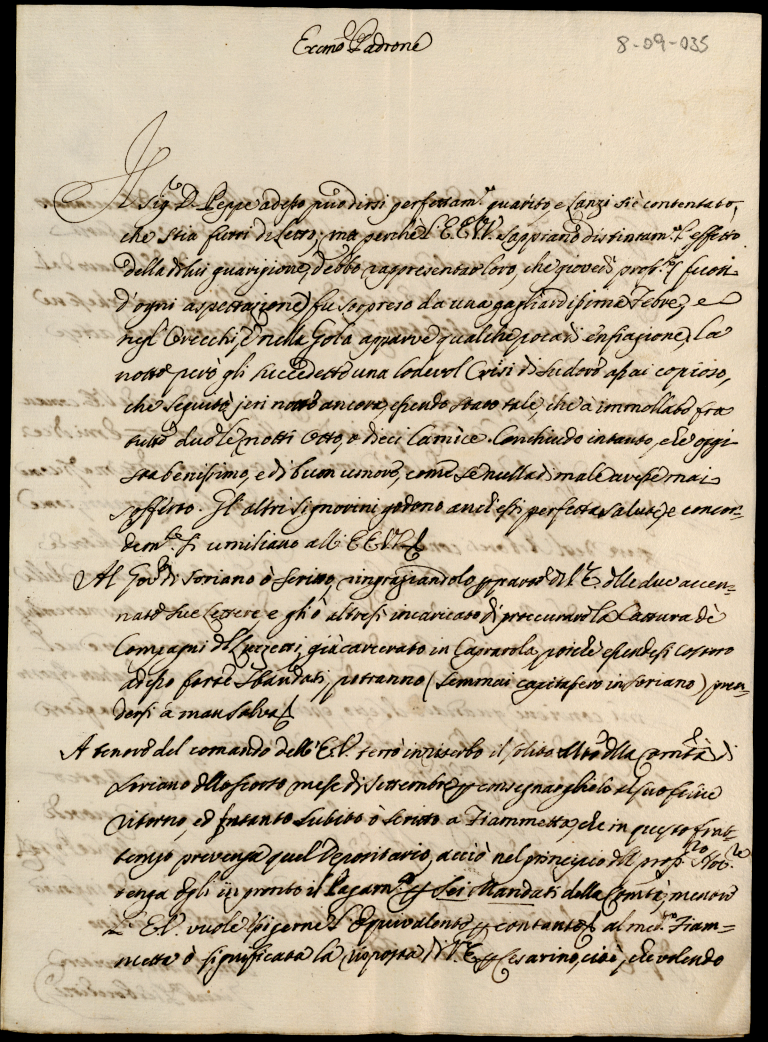 8-09-035
Ecc.mo Padrone
Il Sig.r D. Peppe adesso può dirsi perfettam.te guarito e Lanzi si è contentato,
che stia fuori di Letto; ma perchè l'EE.VV. sappiano distintam.te l'effetto
della di lui guarigione, debbo rappresentar loro, che giovedì pross.o (fuori
d'ogni aspettazione) fu sorpreso da una gagliardissima Febre, e
negl'Orecchi, e nella Gola apparve qualche poca di enfiagione, La
notte però gli succedette una lodevol Crisi di sudore assai copioso,
che seguitò jeri notte ancora, essendo stato tale, che à immollato fra
tutte due le notti otto, o dieci Camice. Conchiudo intanto, che oggi
sta benissimo, e di buon umore, come se nulla di male avesse mai
sofferto. Gl'altri Signorini godono anch'essi perfetta salute, e concor-
dem.te si umiliano all'EE.VV.
Al Gov.re di Soriano ò scritto, ringraziandolo p parte di V.E. delle due accen-
nate sue Lettere, e gli ò altresì incaricato di proccurare la Cattura de'
Compagni del Luzzetti, già carcerato in Caprarola, poichè essendosi costoro
adesso forse sbandati, potranno (semmai capitassero in Soriano) pren-
dersi a man salva.
A tenore del comando dell'E.V. terrò in riserbo il solito della Comtà di
Soriano dello scorso mese di Settembre p consegnarglielo al suo felice
ritorno, ed intanto subito ò scritto a Fiammetta, che in questo frat-
tempo prevenga quel Depositario, acciò nel principio del pross.mo Nov.re
tenga egli ivi pronto il Pagam.to p Sei Mandati della Comtà, mentre
l'E.V. vuole esigerne l'Equivalente p contanti, al med.o Fiam-
metta ò significata la risposta di V.E. p Cesarino, cioè, che volendo